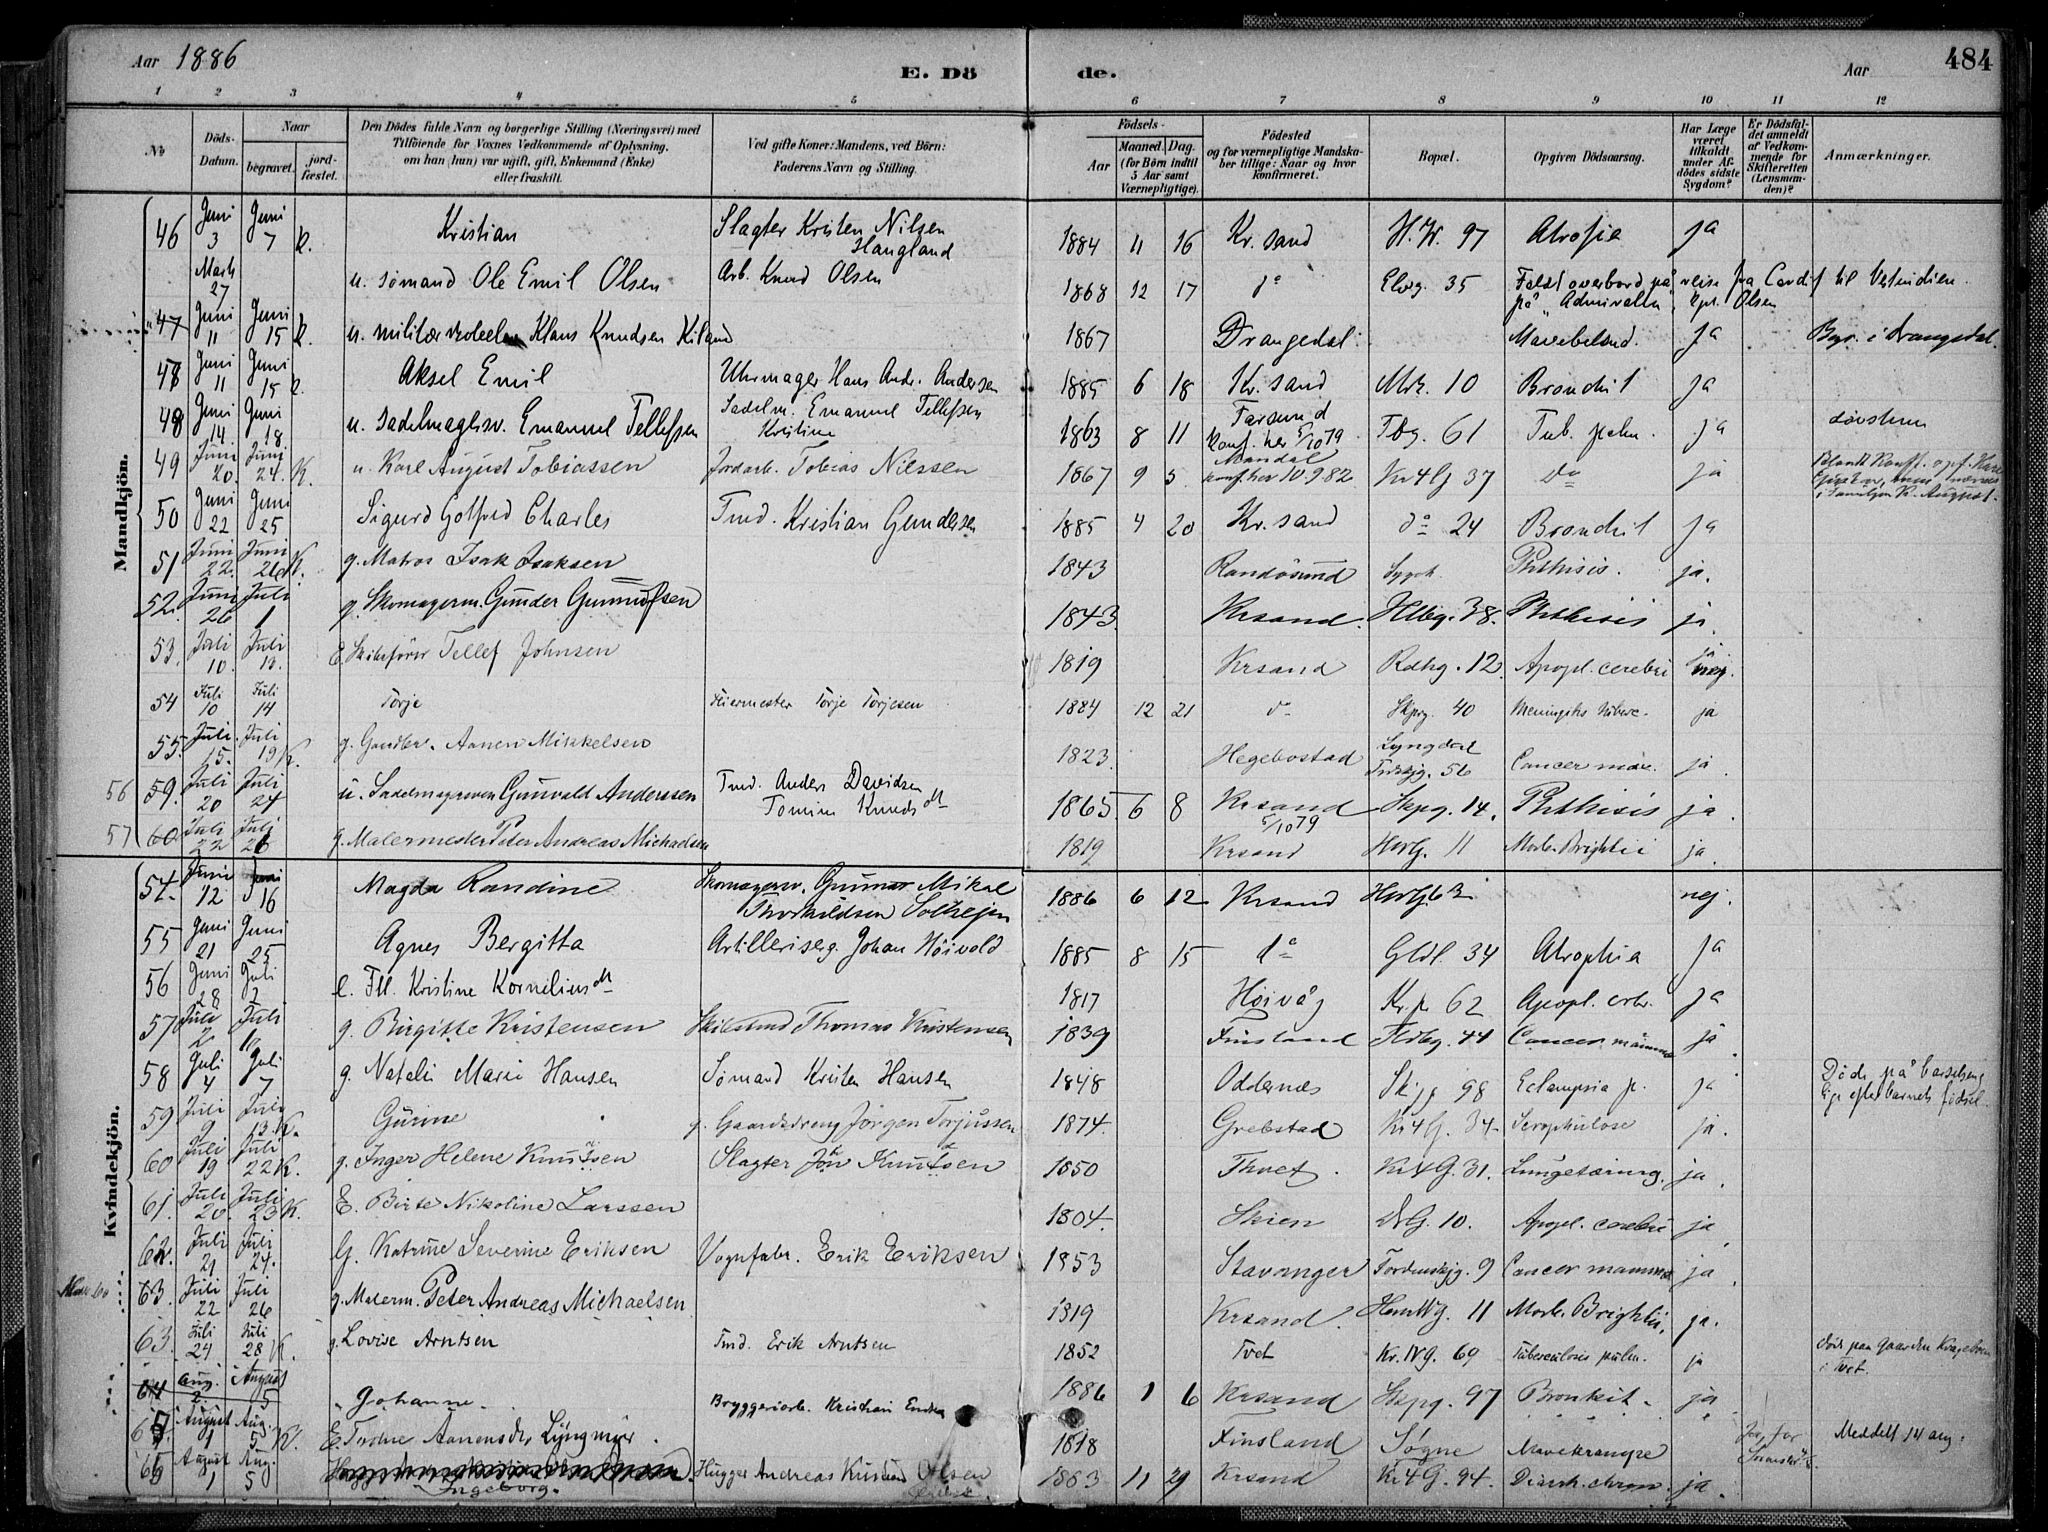 Aar 1886
E. Dö
de.
Aar
484
1 2 3 4 5 6 7 8 9 10 11 12
No
Döds-Datum.
Naar
begravet.
jord-fæstet.
Den Dödes fulde Navn og borgerlige Stilling (Næringsvei) med
Tilföiende for Voxnes Vedkommende af Oplysning,
om han (hun) var ugift, gift, Enkemand (Enke)
eller fraskilt.
Ved gifte Koner: Mandens, ved Börn:
Faderens Navn og Stilling.
Födsels-
Aar
Maaned. Dag.
(for Börn indtil 5 Aar samt Værnepligtige).
Födested
og for værnepligtige Mandskaber tillige: Naar og hvor konfirmeret.
Bopæl.
Opgiven Dödsaarsag.
Har Læge været tilkaldt under Afdödes sidste Sygdom?
Er Dödsfaldet anmeldt af Vedkommende for Skifteretten (Lensmanden)?
Anmærkninger.
Mandkjön.
46 Juni 3 Juni 7 k. Kristian Slagter Kristen Nilsen Haugland 1884 11 16 Kr. sand H. W. 97 Atrofia ja
Marts 27 u. sømand Ole Emil Olsen Arb. Knud Olsen 1868 12 17 do Elvg. 35 Faldt overbord på reise fra Cardif til Vestindien
på "Admiralen", kpt. Olsen
47 Juni 11 Juni 15 k. u. Klaus Knudsen Kiland 1867 Drangedal ja Begr. i Drangedal.
48 Juni 11 Juni 15 k. Aksel Emil Uhrmager Hans Andr. Andersen 1885 6 18 Kr. sand Mrk. 10 Bronchit ja
48 Juni 14. Juni 18. u. Sadelmagersv. Emanuel Tellefsen Sadelm. Emanuel Tellefsen Kristine 1863 8 11 Farsund konf. her 5/10 79 Tbg. 61 Tub. pulm. ja døvstum
49 Juni 20. Juni 24. K. u. Karl August Tobiassen Jordarb. Tobias Nilssen 1867 9 5 Mandal konf. her 10. 9. 82 Kr 4 G 37 do ja
50 Juni 22 Juni 25 Sigurd Gotfred Charles Tmd. Kristian Gundersen 1885 4 20 Kr. sand do 24 Bronchit ja
51 Juni 22. Juni 26 K. g. Matros Isak Isaksen 1843 Randøsund Sygeh. Phthisis. ja.
52. Juni 26 Juli 1 g. Skomagerm. Gunder Gunnufsen 1843. Krsand. Hlbg. 38. Phthisis ja
53. Juli 10. Juli 13. E. Skibsfører Tellef Johnsen 1819 Krsand Rdhg. 12. Apopl. cerebri ja
54 Juli 10 Juli 14 Torje Feiermester Torje Torjesen 1884 12 21 do Skpg. 40 Meningitis tuberc. ja
55. Juli 15. Juli 19 K. g. Gaardbr. Aanen Mikkelsen 1823. Hegebostad Lyngdal 56 Cancer ja.
56 59. Juli 20 Juli 24 u. Sadelmagersven Gunvald Anderssen Tmd. Anders Davidsen 1865. 6 8 Krsand 5/10 79 Skpg. 14. Phthisis ja.
57 60 Juli 22 Juli 26 g. Malermester Peter Andreas Michaelsen 1819 Krsand 11 Morb. Brightii ja.
Kvindekjön.
54. Juni 12 Juni 16 Magda Randine Skomagersv. Gunnar Mikal Thorkildsen 1886 6 12 Krsand nej.
55 Juni 21 Juni 25 Agnes Bergitta Artilleriserg. Johan Höivold 1885 8 15 do Gldl. 34 Atrophia ja
56 Juni 28 Juli 2 Kristine Korneliusdt 1817 Höivåg Kr. p. 62 Apopl. crbr. ja
57 Juli 2 Juli g. Birgitte Kristensen Skibstmd Thomas Kristensen 1839 Finsland Tldbg. 44 Cancer mammæ ja.
58 Juli 4 Juli 7 g. Natali Marie Hansen Sømand Kristen Hansen 1848 Oddernæs 98 Eclampsia p. ja Døde på barselseng lige efter barnets fødsel.
59 Juli 9 Juli 13. K. Gurine g. Gaardsdreng Jørgen Torjussen 1874. Grebstad Kr 4 G. 34 Scrophulose ja.
60 Juli 19 Juli 22 K. g. Inger Helene Knutsen Slagter Jon Knutsen 1850 Thvet. Kr 4 G. 31. Lungetæring. ja.
61. Juli 20. Juli 23 K. E. Birte Nikoline Larssen 1804. Skien 10. Apopl. cerebri ja.
62. Juli 21 Juli 24. G. Katrine Severine Eriksen Vognfabr. Erik Eriksen 1853 Stavanger Tordenskjg. 9 Cancer mammæ ja.
63. Juli 22 Juli 26 g. Malerm. Peter Andreas Michaelsen 1819 Krsand. 11 Morb. Brightii. ja.
63. Juli 24 Juli 28 K. g. Lovise Arntsen Tmd. Erik Arntsen 1852 Tvet Kr. IV G. 69 Tuberculosis pulm. ja død paa gaarden i Tvet.
64 Aug. 2. August 5 Johanne. Bryggeriarb. Kristian 1886 1 6 Krsand Skpg. 97 Bronkit. ja.
August 1 Aug. 5 K. E. Todne Aanensdtr Lyngmyr. 1818 Finsland Søgne Mavekrampe Meddelt 14 aug.
65 August 1 Aug. 5 Ingeborg. Hugger Andreas Kristian Olsen 1883 11 29 Krsand Kr 4 G. 94. Diarrh. chron. ja.